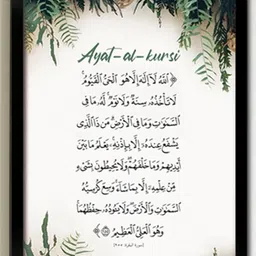 Ayat-al-kursi
﴿ ٱللَّهُ لَآ إِلَٰهَ إِلَّا هُوَ ٱلْحَىُّ ٱلْقَيُّومُ ۚ
لَا تَأْخُذُهُۥ سِنَةٌ وَلَا نَوْمٌ ۚ لَّهُۥ مَا فِى
ٱلسَّمَٰوَٰتِ وَمَا فِى ٱلْأَرْضِ ۗ مَن ذَا ٱلَّذِى
يَشْفَعُ عِندَهُۥٓ إِلَّا بِإِذْنِهِۦ ۚ يَعْلَمُ مَا بَيْنَ
أَيْدِيهِمْ وَمَا خَلْفَهُمْ ۖ وَلَا يُحِيطُونَ بِشَىْءٍ
مِّنْ عِلْمِهِۦٓ إِلَّا بِمَا شَآءَ ۚ وَسِعَ كُرْسِيُّهُ
ٱلسَّمَٰوَٰتِ وَٱلْأَرْضَ ۖ وَلَا يَـُٔودُهُۥ حِفْظُهُمَا ۚ
وَهُوَ ٱلْعَلِىُّ ٱلْعَظِيمُ ﴾